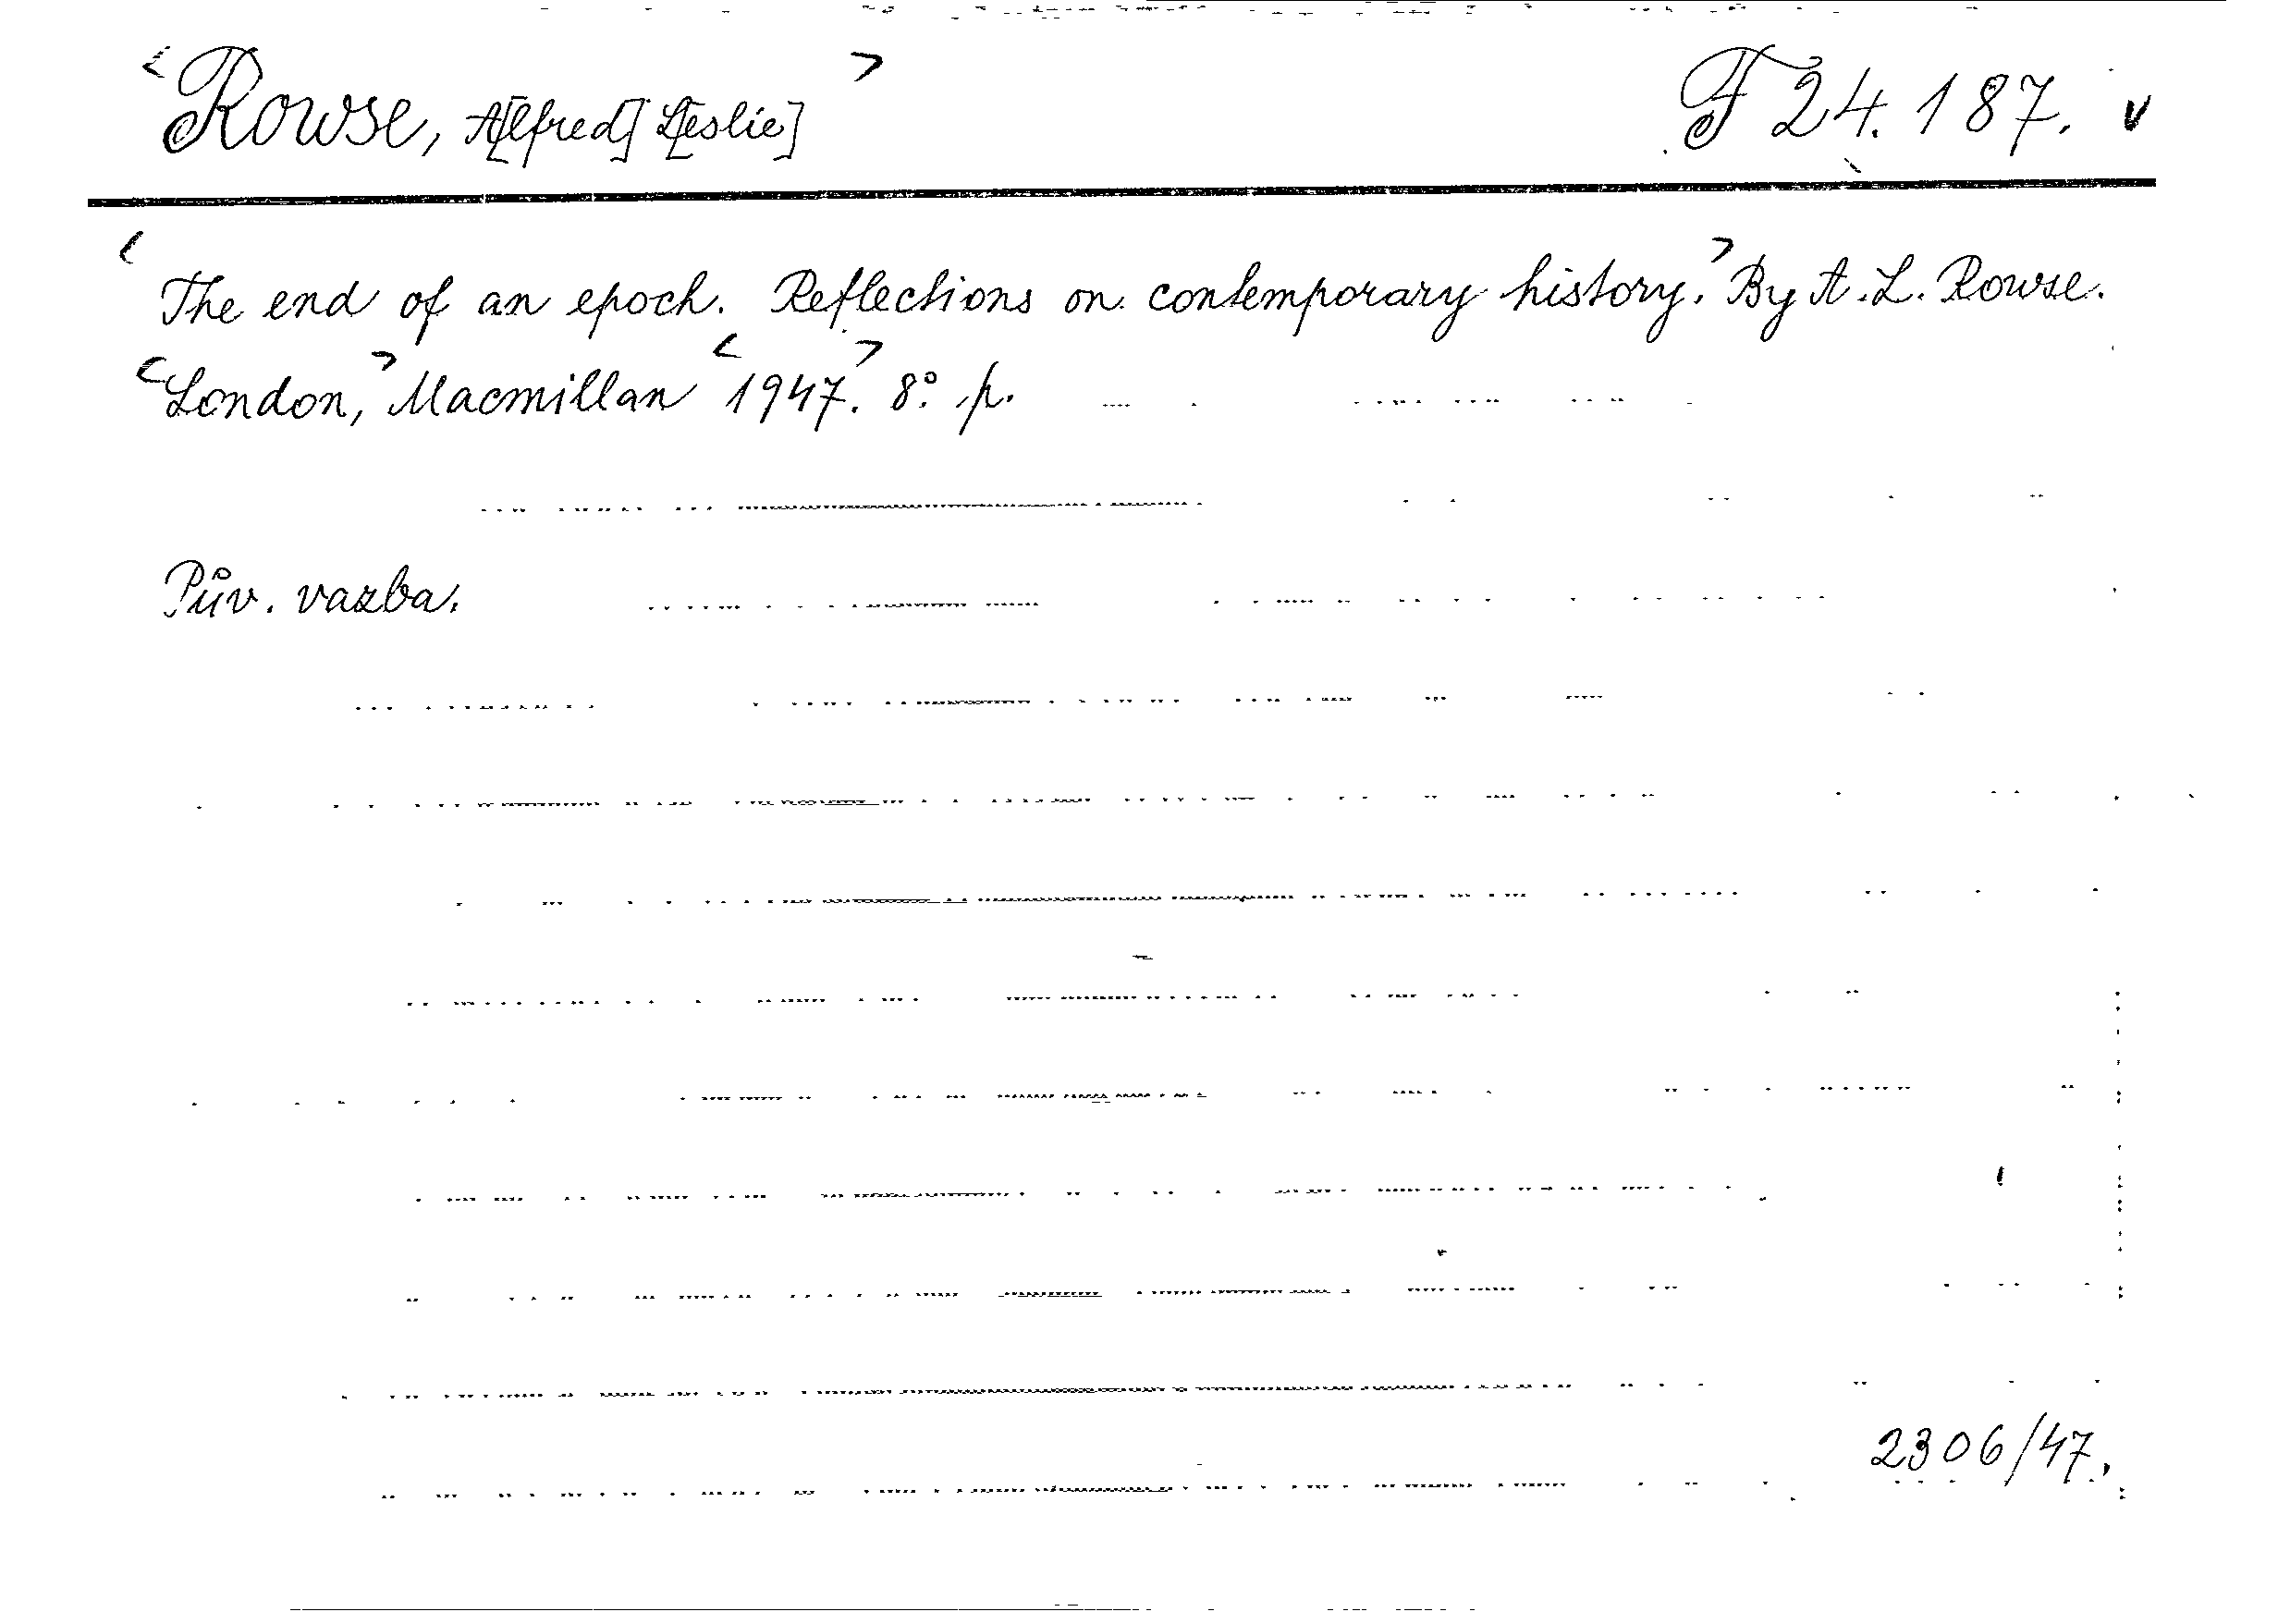 <Rowse, A[lfred] L[eslie]> F 24.187. v
<The end of an epoch. Reflections on contemporary history.> By A. L. Rowse.
<London,> Macmillan <1947.> 8°. p.
Pův. vazba.
2306/47.